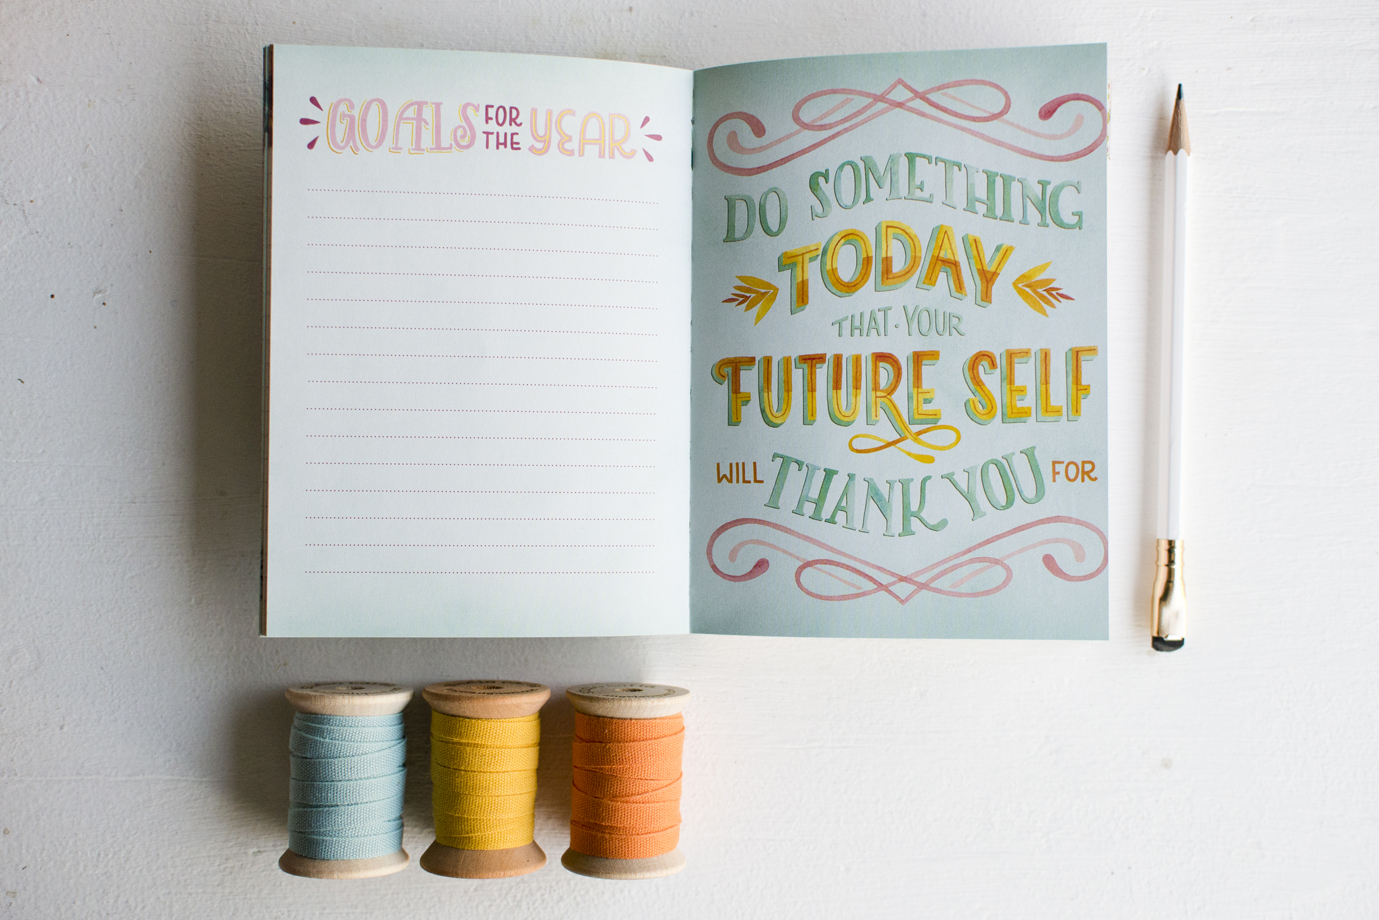 GOALS FOR THE YEAR
DO SOMETHING
TODAY
THAT·YOUR
FUTURE SELF
WILL THANK YOU FOR